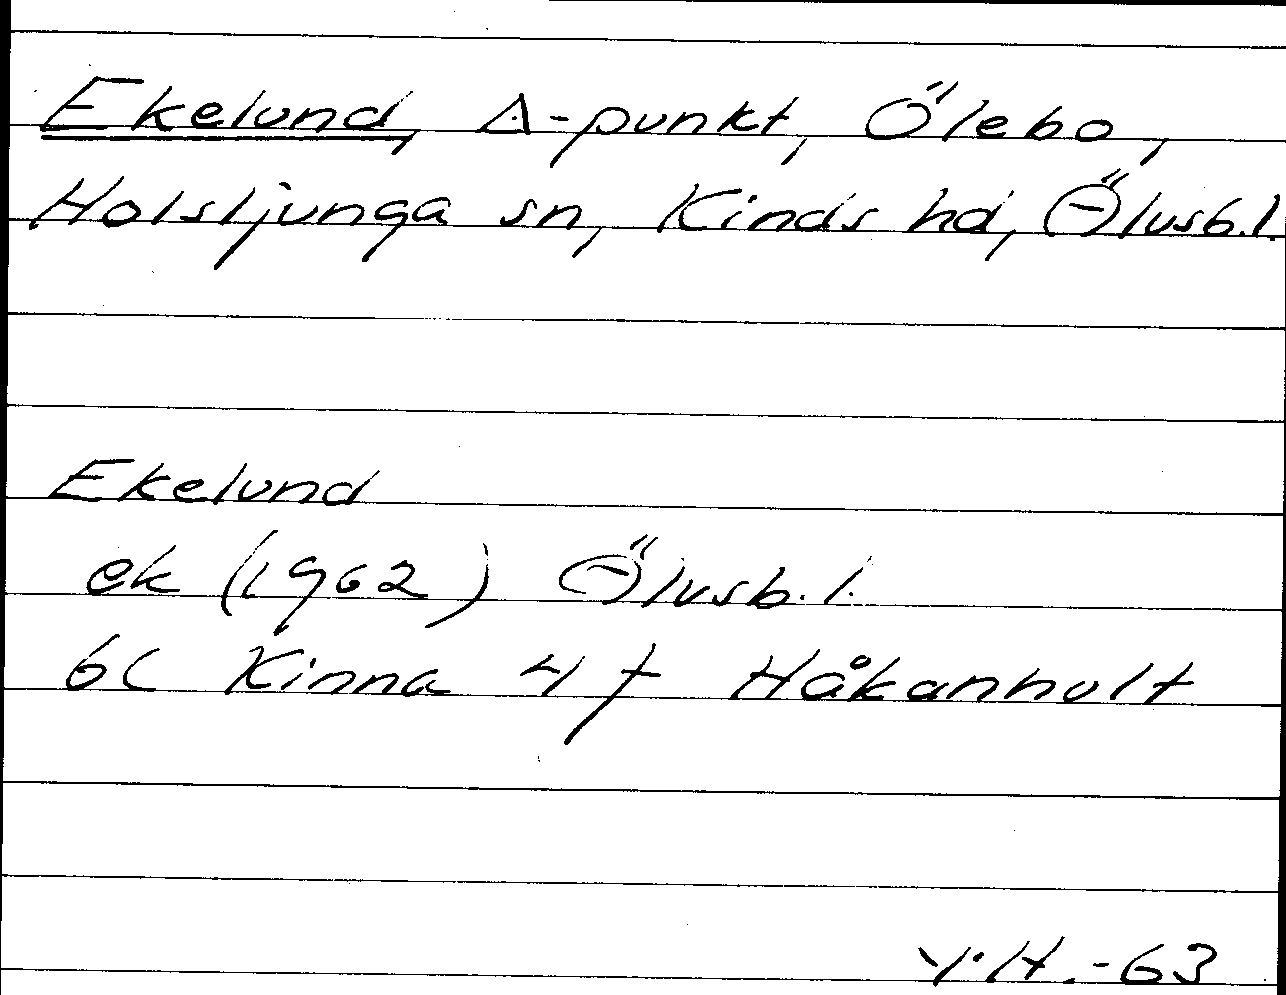 Ekelund, Δ-punkt, Ölebo,
Holsljunga sn, Kinds hd, Älvsb.l.
Ekelund
ek (1962) Älvsb.l.
6C Kinna 4 f Håkanhult
Y.H.-63